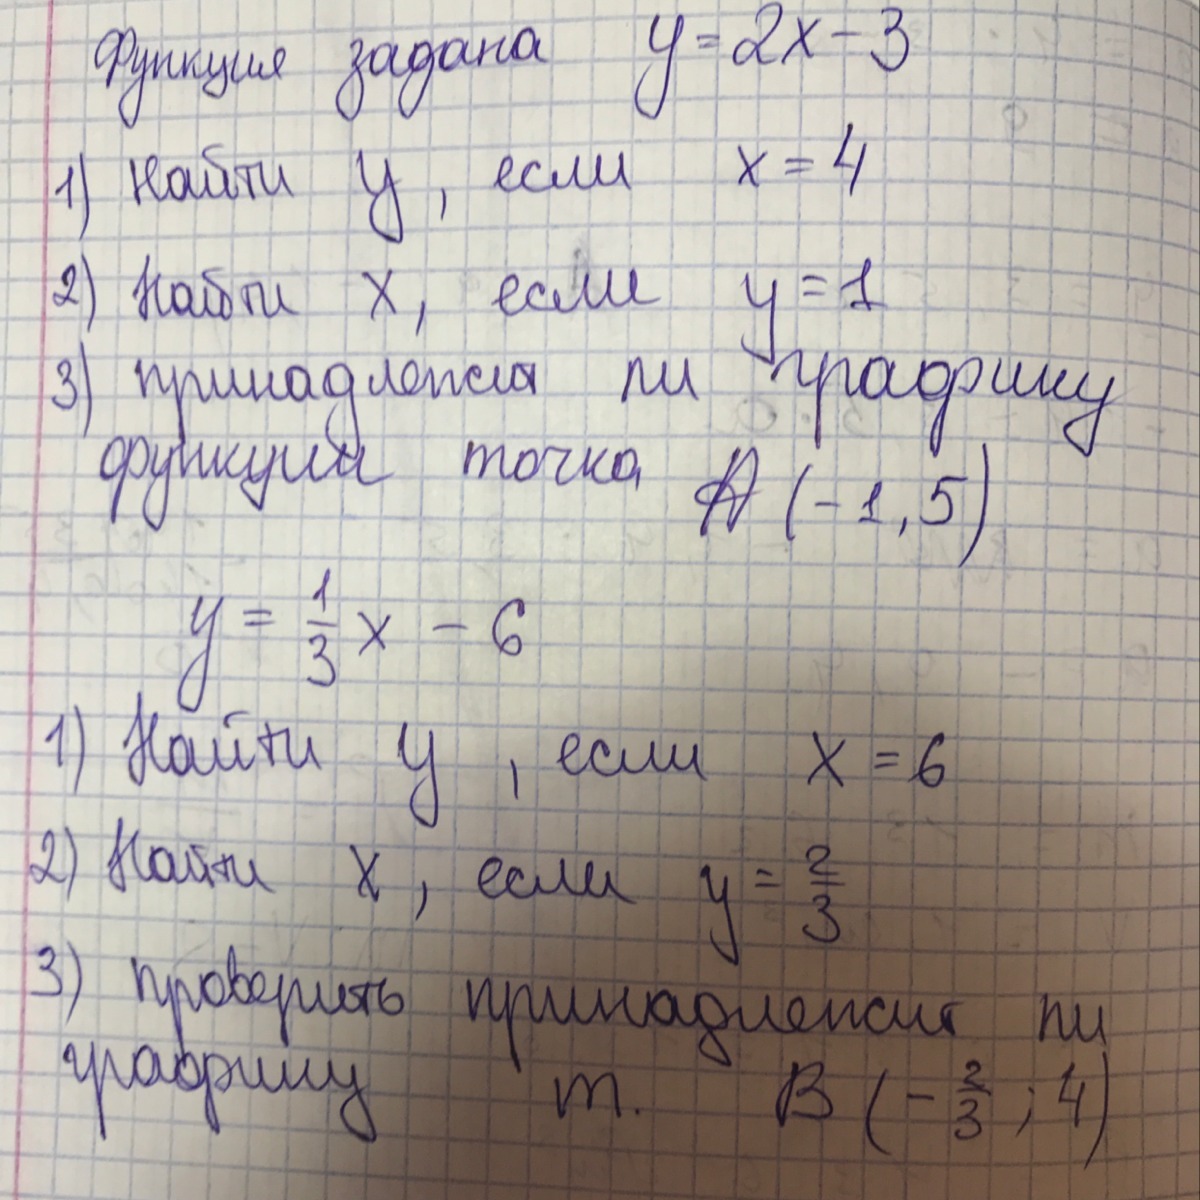 Функция задана y = 2x - 3
1) Найти y, если x = 4
2) Найти x, если y = 1
3) принадлежит ли графику
функции точка A (-1, 5)
y = 1/3 x - 6
1) Найти y, если x = 6
2) Найти x, если y = 2/3
3) проверить принадлежит ли
графику т. B (-2/3; 4)